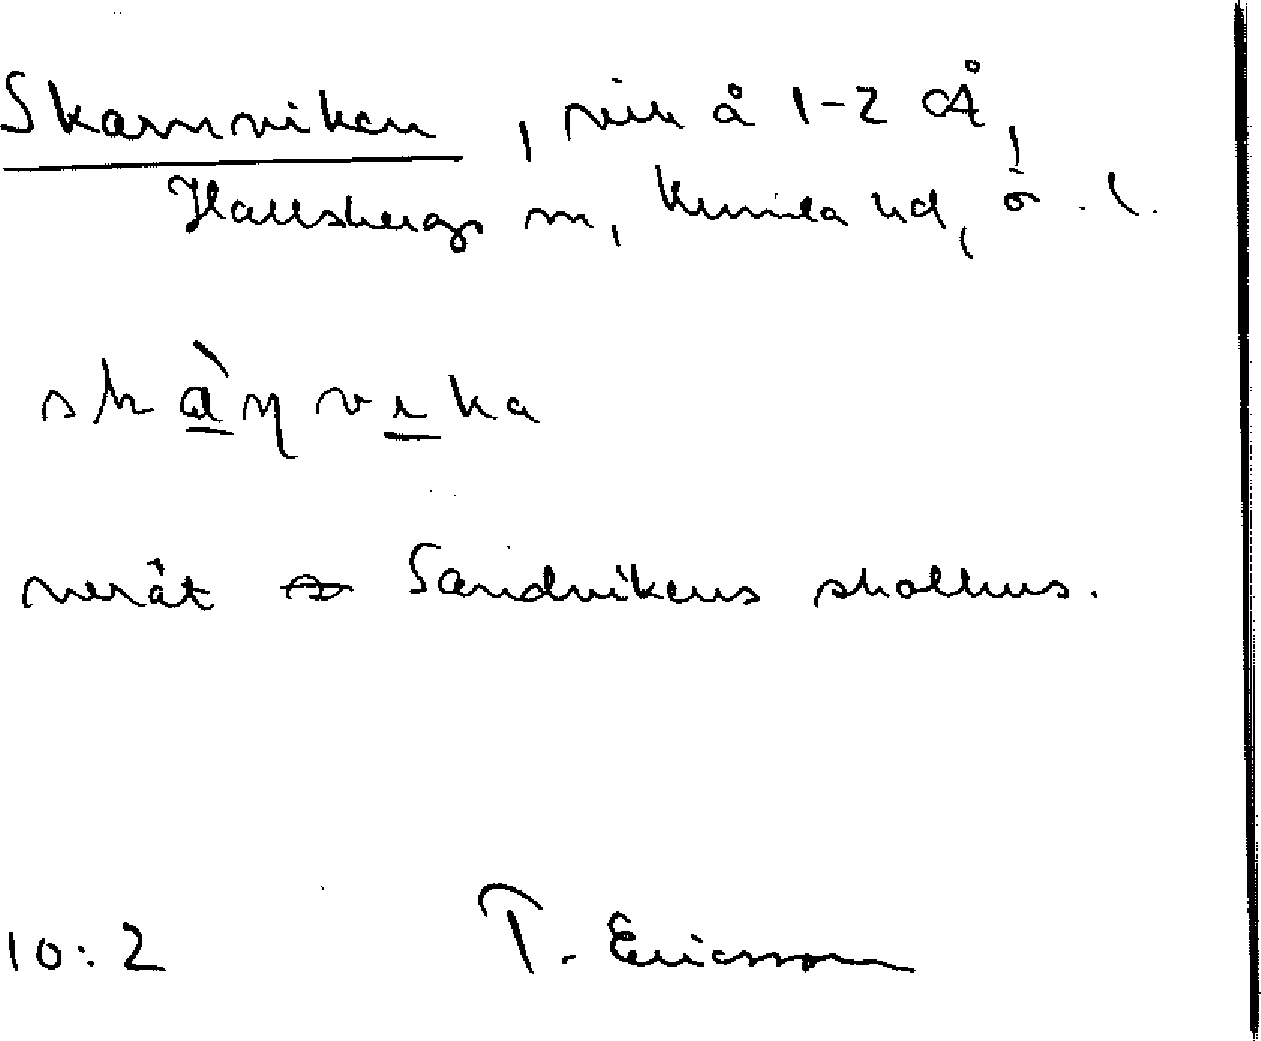 Skarnviken, vik å 1-2 Å,
Hallsbergs sn, Kumla hd, ö. l.
skàɳvɩka
utåt Sandvikens skolhus.
10:2 T. Ericsson